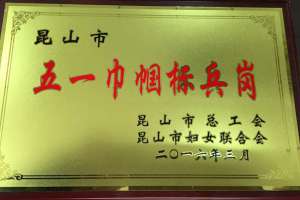 昆山市
五一巾帼标兵岗
昆山市总工会
昆山市妇女联合会
二〇一六年三月